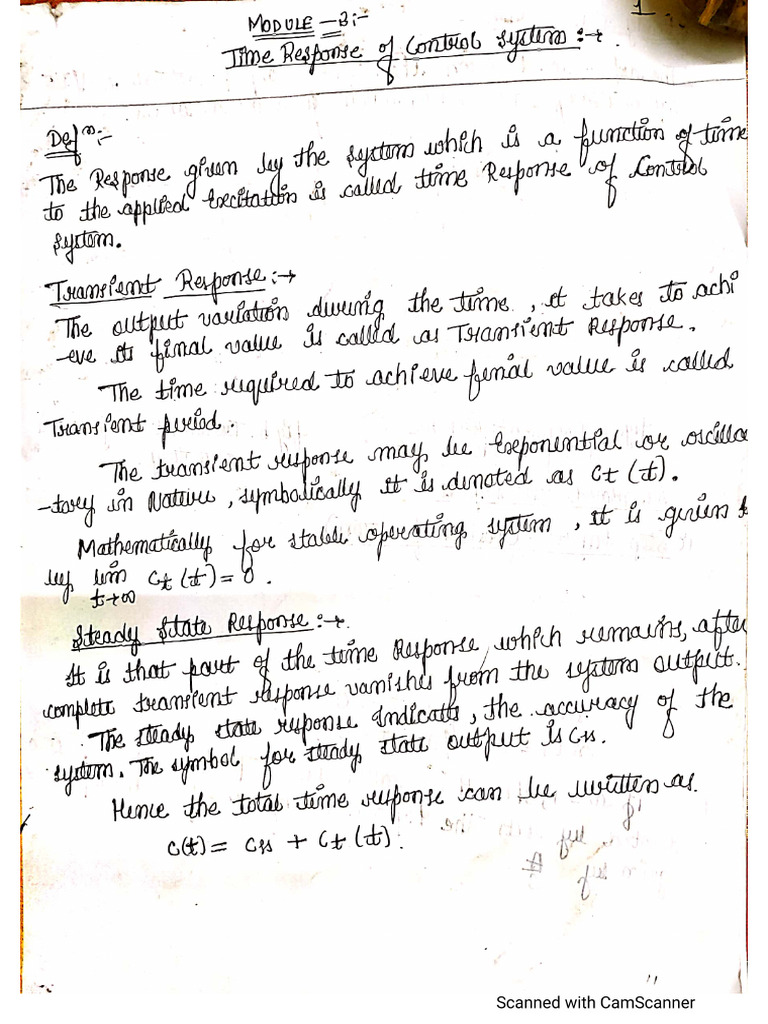 1
MODULE-3:-
Time Response of Control System:→.
Defn:-
The Response given by the system which is a function of time
to the applied Excitation is called time Response of Control
system.
Transient Response:→
The output variation during the time, it takes to achi
-eve its final value is called as Transient Response.
The time required to achieve final value is called
Transient period.
The transient response may be Exponential or oscilla
-tory in Nature, symbolically it is denoted as Ct(t).
Mathematically for stable operating system, it is given
by lim Ct(t)=0.
t→∞
Steady State Response:→.
It is that part of the time Response, which remains, after
complete transient response vanishes from the system output.
The steady state response Indicates, the accuracy of the
system. The symbol for steady state output is Css.
Hence the total time response can be written as.
C(t)= Css + Ct(t).
Scanned with CamScanner